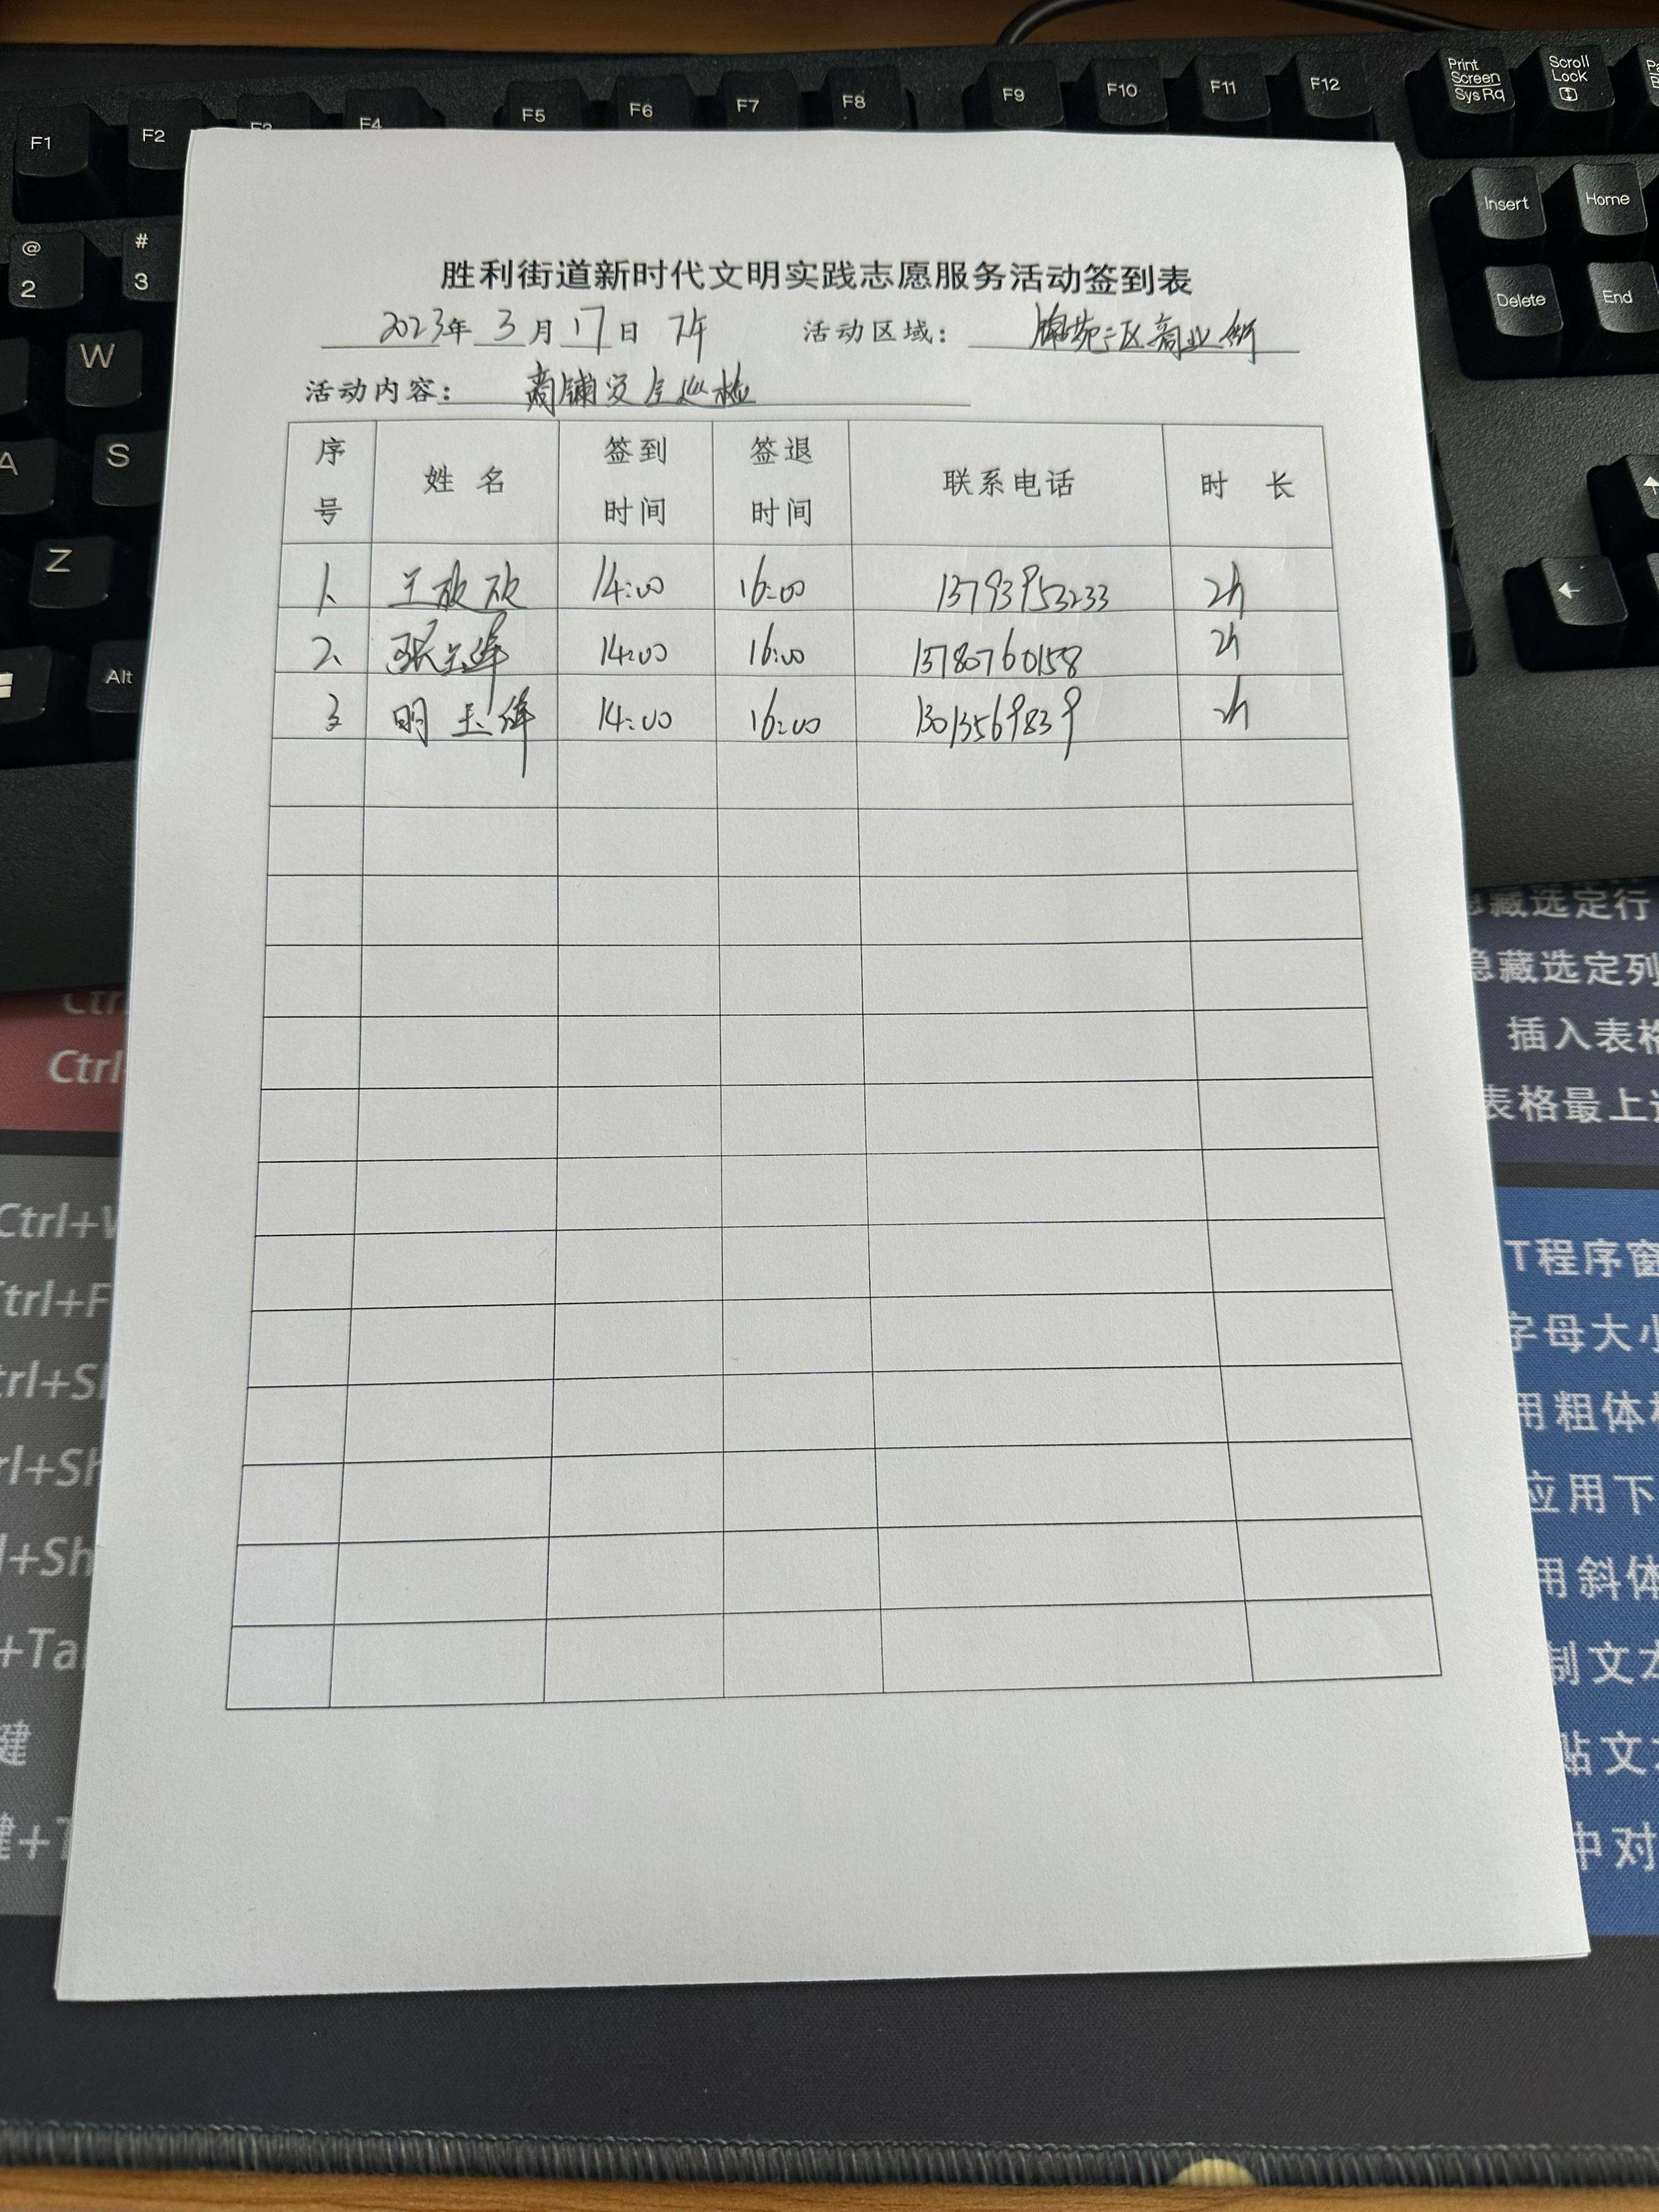 F1 F2 F3 F4 F5 F6 F7 F8 F9 F10 F11 F12 Print Screen SysRq Scroll Lock
@ 2 # 3 Insert Home
W Delete End
A S
Z
Alt
胜利街道新时代文明实践志愿服务活动签到表
2023年 3 月 17 日 下午 活动区域: 锦苑二区商业街
活动内容: 商铺安全巡检
序号 姓 名 签到时间 签退时间 联系电话 时 长
1、 14:00 16:00 13793953233 2h
2、 14:00 16:00 13780760158 2h
3 明 14:00 16:00 13013569839 2h
隐藏选定行
隐藏选定列
插入表格
表格最上
Ctrl
T程序窗
字母大小
用粗体
应用下
用斜体
制文本
贴文本
中对
Ctrl+V
Ctrl+F
Ctrl+Sh
Ctrl+Sh
+Sh
+Tab
键